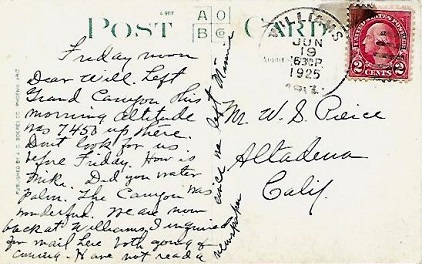 POST CARD
AO
BC
WILLIAMS
JUN
19
630P.
1925
ARIZ.
UNITED STATES POSTAGE
2 CENTS 2
Friday noon
Dear Will. Left
Grand Canyon this
morning altitude
was 7450 up there.
Dont look for us
before Friday. How is
Mike. Did you water
Palm. The Canyon was
wonderful. We are now
back at Williams, I inquired
for mail here both going &
coming. Have not read a
newspaper since we left
Mr. W. S. Pierce
Altadena
Calif.